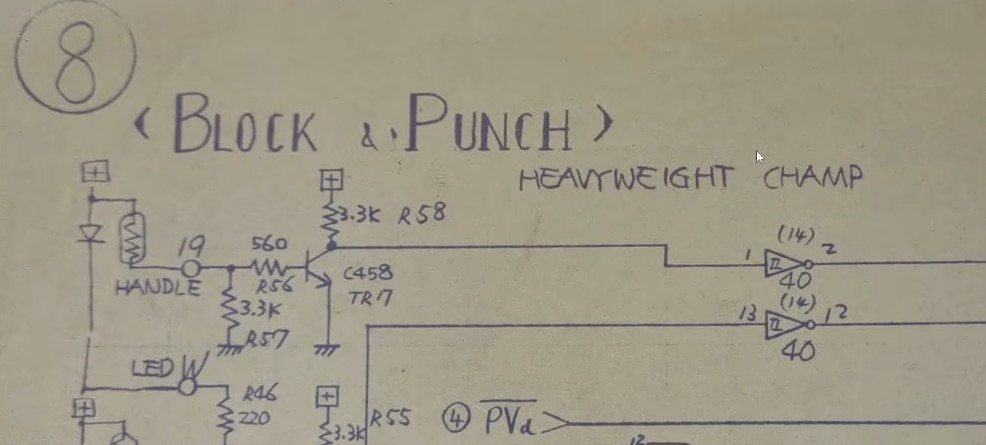 8
< BLOCK & PUNCH >
HEAVYWEIGHT CHAMP
+
+
3.3K R58
(14)
19
560
1
2
II
HANDLE
R56
C458
40
TR17
3.3K
(14)
13
12
II
R57
40
LED W
R46
+
+
220
R55
4 PVd
3.3K
12